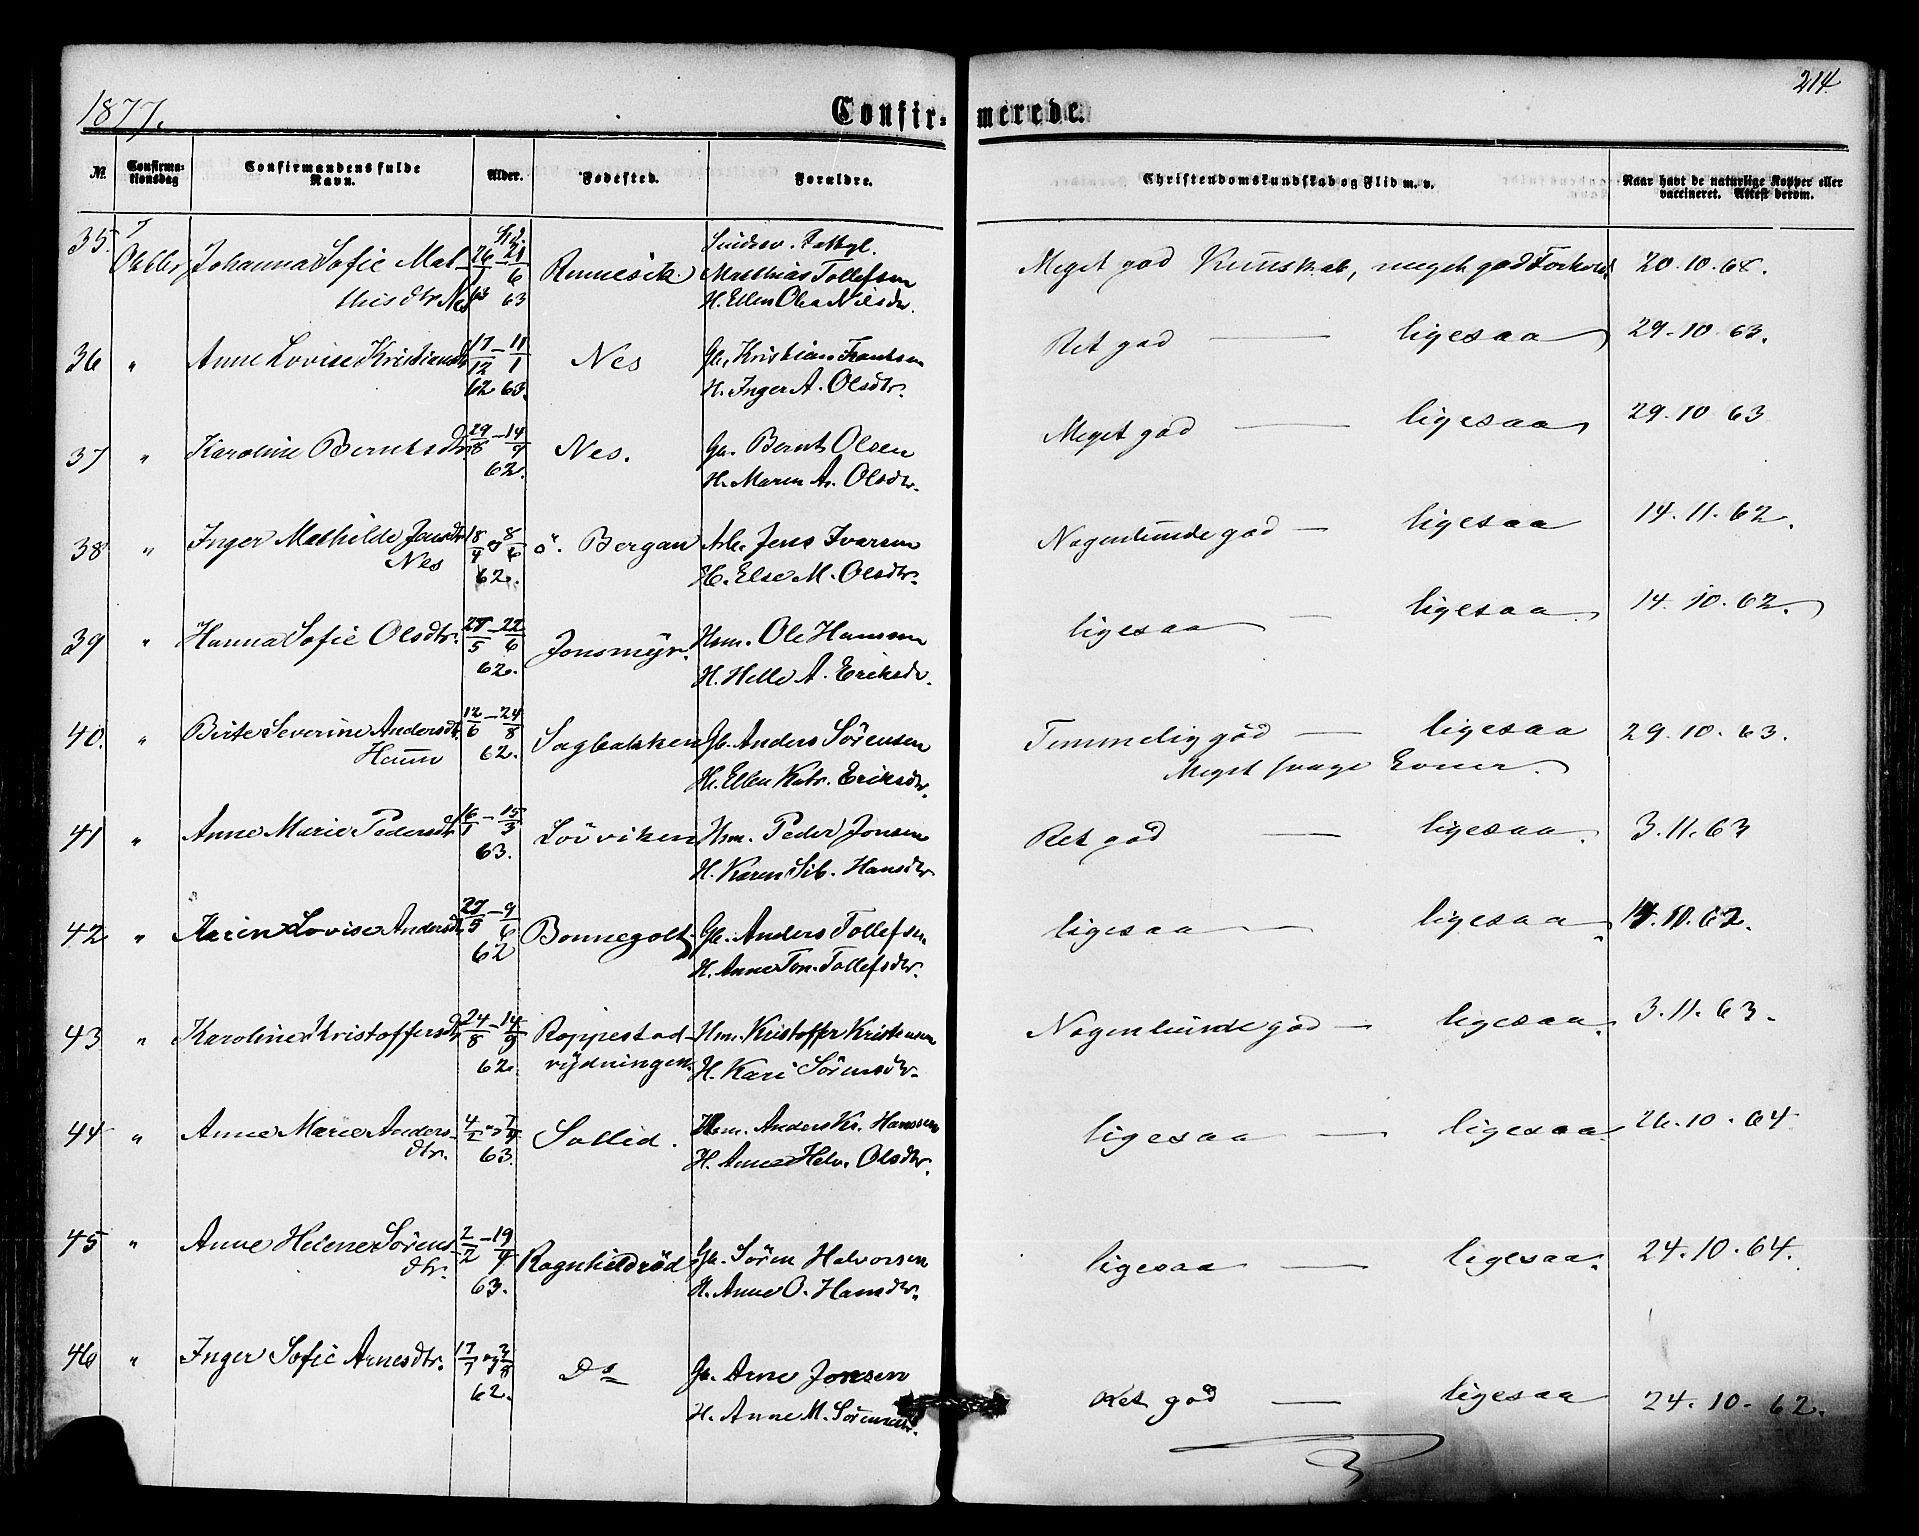 1877.
Confir-
merede.
214
№.
Confirma-
tionsdag
Confirmandens fulde
Navn.
Alder.
Fødested.
Forældre.
Christendomskundskab og Flid m. v.
Naar havt de naturlige Kopper eller
vaccineret. Attest derom.
35. 7 Oktbr Johanna Sofie Mat-
thisdtr Nes
26/1 - 21/6
63 63
Matthias Tollefsen
H. Ellen Olea Nielsdr.
Meget god Kunskab, meget god Forhold 20.10.68.
36 " Anne Lovise Kristiansdt
17/12 - 11/1
62 63.
Nes
Gb. Kristian Frantsen
H. Inger A. Olsdtr.
Ret god — ligesaa 29.10.63.
37 " Karoline Berntsdtr
29/8 - 14/9
62.
Nes.
Gb. Bernt Olsen
H. Maren A. Olsdtr.
Meget god — ligesaa 29.10 63
38 " Inger Mathilde Jensdtr
Nes
18/4 og 8/6
62.
ö. Bergan
Arb. Jens Ivarsen
H. Else M. Olsdtr.
Nogenlunde god — ligesaa 14.11.62.
39 " Hanna Sofie Olsdtr.
27/5 - 22/6
62.
Jonsmyr.
Hsm. Ole Hansen
H. Helle A. Eriksdr.
ligesaa — ligesaa 14.10.62.
40. " Birte Severine Andersdt.
12/6 - 24/8
62.
Sagbakken
Gb. Anders Sörensen
H. Ellen Katr. Eriksdtr.
Temmelig god — ligesaa 29.10.63.
Meget svage Evner.
41 " Anne Marie Pedersdt
16/1 - 15/3
63.
Lövviken
Hsm. Peder Jonsen
H. Karen Sib. Hansdtr
Ret god — ligesaa. 3.11.63
42 " Karen Lovise Andersdt
27/5 - 9/6
62
Bonnegolt
Gb. Anders Tollefsen
H. Anne Ton. Tollefsdtr.
ligesaa — ligesaa. 14.10.62.
43 " Karoline Kristoffersdt
24/8 - 14/9
62.
Roppestad-
rydningen
Hsm. Kristoffer Kristensen
H. Kari Sörensdr.
Nogenlunde god — ligesaa. 3.11.63.
44 " Anne Marie Anders-
dtr.
4/2 og 7/4
63.
Sollid.
Hsm. Anders Kr. Hanssen
H. Anne Helv. Olsdtr.
ligesaa — ligesaa. 26.10.64
45 " Anne Helene Sörens-
dtr.
2/2 - 19/4
63.
Ragnhildröd
Gb. Sören Halvorsen
H. Anne O. Hansdtr.
ligesaa — ligesaa. 24.10.64.
46 " Inger Sofie Arnesdtr.
17/7 og 3/8
62.
Do
Gb. Arne Jonsen
H. Anne M. Sörensdtr.
Ret god — ligesaa 24.10.62.